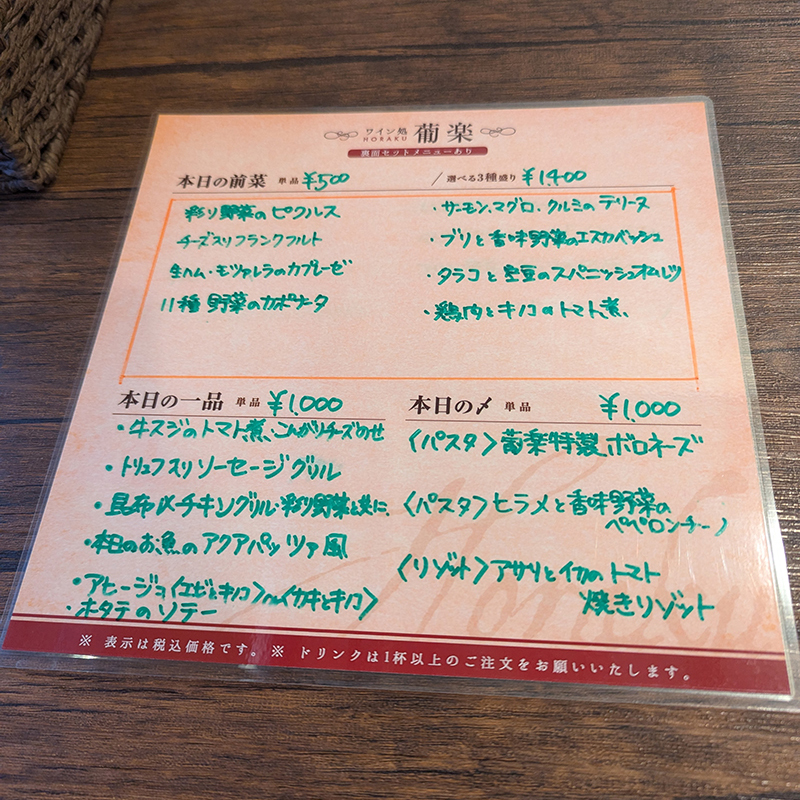 ワイン処
HORAKU
葡楽
裏面セットメニューあり
本日の前菜 単品 ¥500 / 選べる3種盛り ¥1,400
彩り野菜のピクルス
チーズ入りフランクフルト
生ハム・モッツァレラのカプレーゼ
11種野菜のカポナータ
・サーモン、マグロ、クルミのテリーヌ
・ブリと香味野菜のエスカベッシュ
・タラコと空豆のスパニッシュオムレツ
・鶏肉とキノコのトマト煮
本日の一品 単品 ¥1,000
・牛スジのトマト煮、こんがりチーズのせ
・トリュフ入りソーセージグリル
・昆布〆チキングリル・彩り野菜と共に
・本日のお魚のアクアパッツァ風
・アヒージョ〈エビとキノコ〉or〈カキとキノコ〉
・ホタテのソテー
本日の〆 単品 ¥1,000
〈パスタ〉葡楽特製ボロネーズ
〈パスタ〉ヒラメと香味野菜の
ペペロンチーノ
〈リゾット〉アサリとイカのトマト
焼きリゾット
Horaku
※ 表示は税込価格です。※ ドリンクは1杯以上のご注文をお願いいたします。